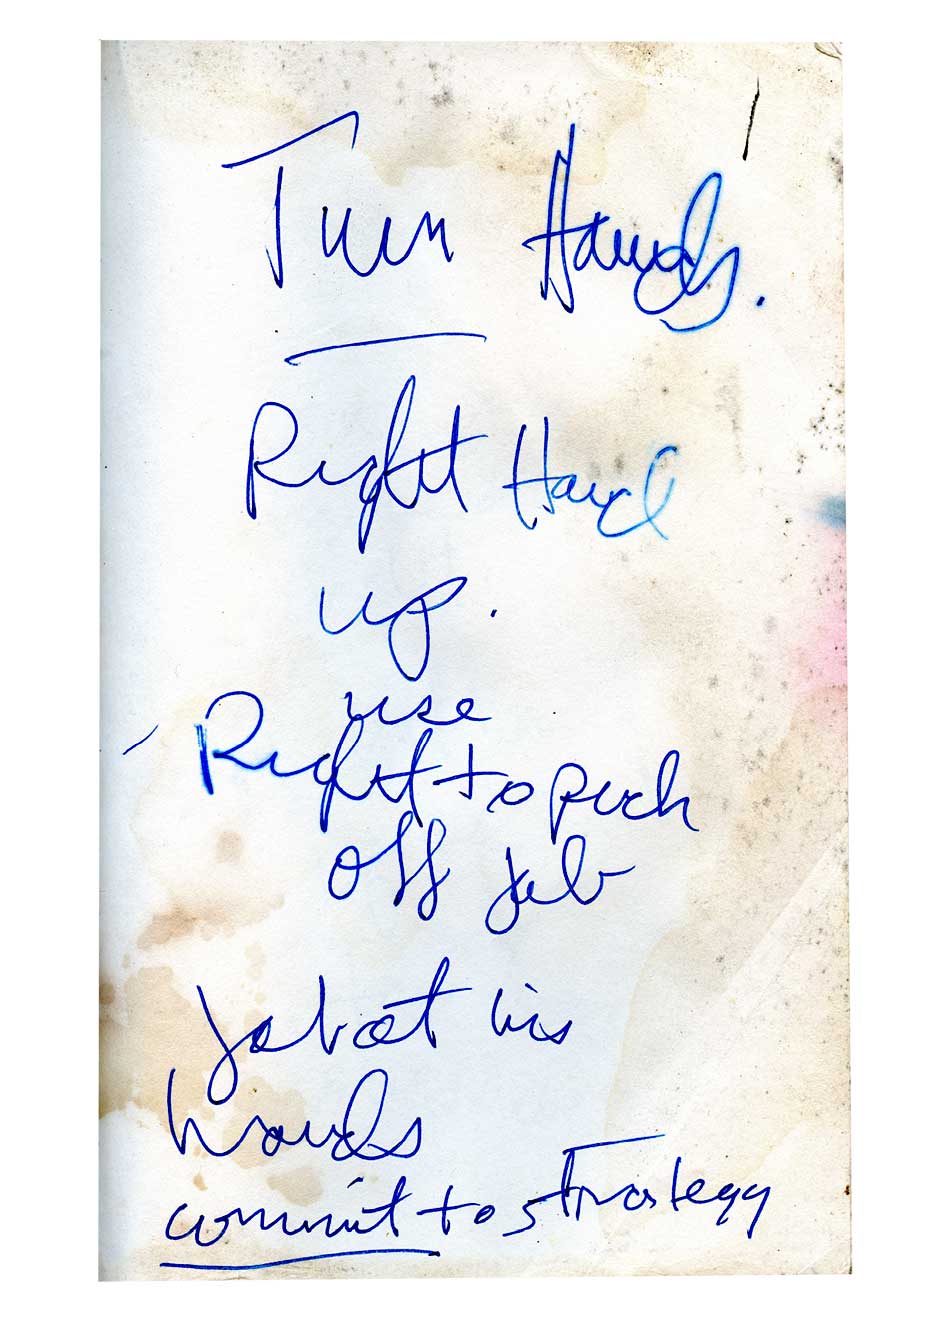 Turn Hands.
Right Hand
up.
use
Right to push
off Jab
Jab at his
hands
commit to strategy